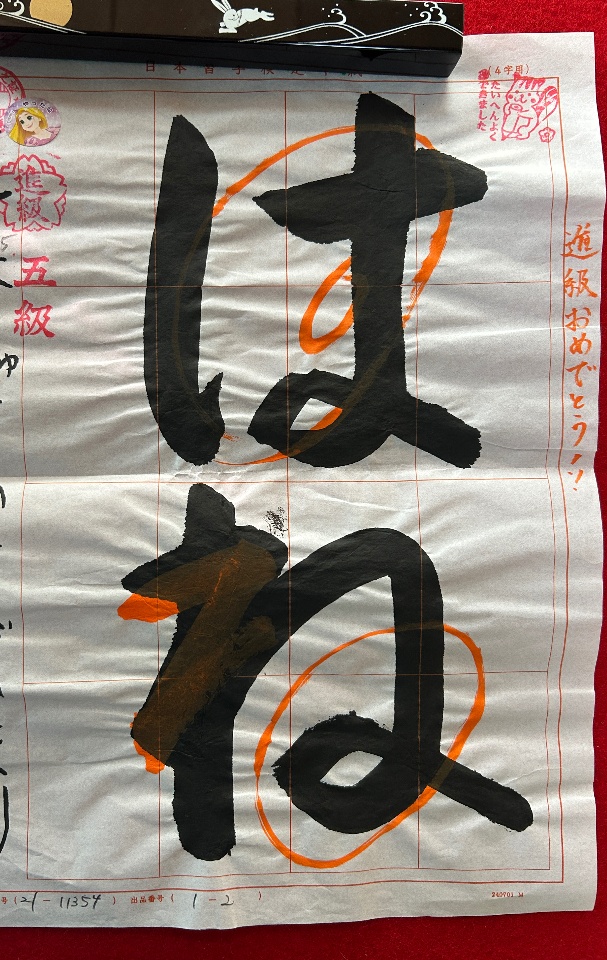 (4字用)
たいへんよく
できました
進級おめでとう!!
はね
進級
五級
号(21-11354) 出品番号(1-2)
240701 M